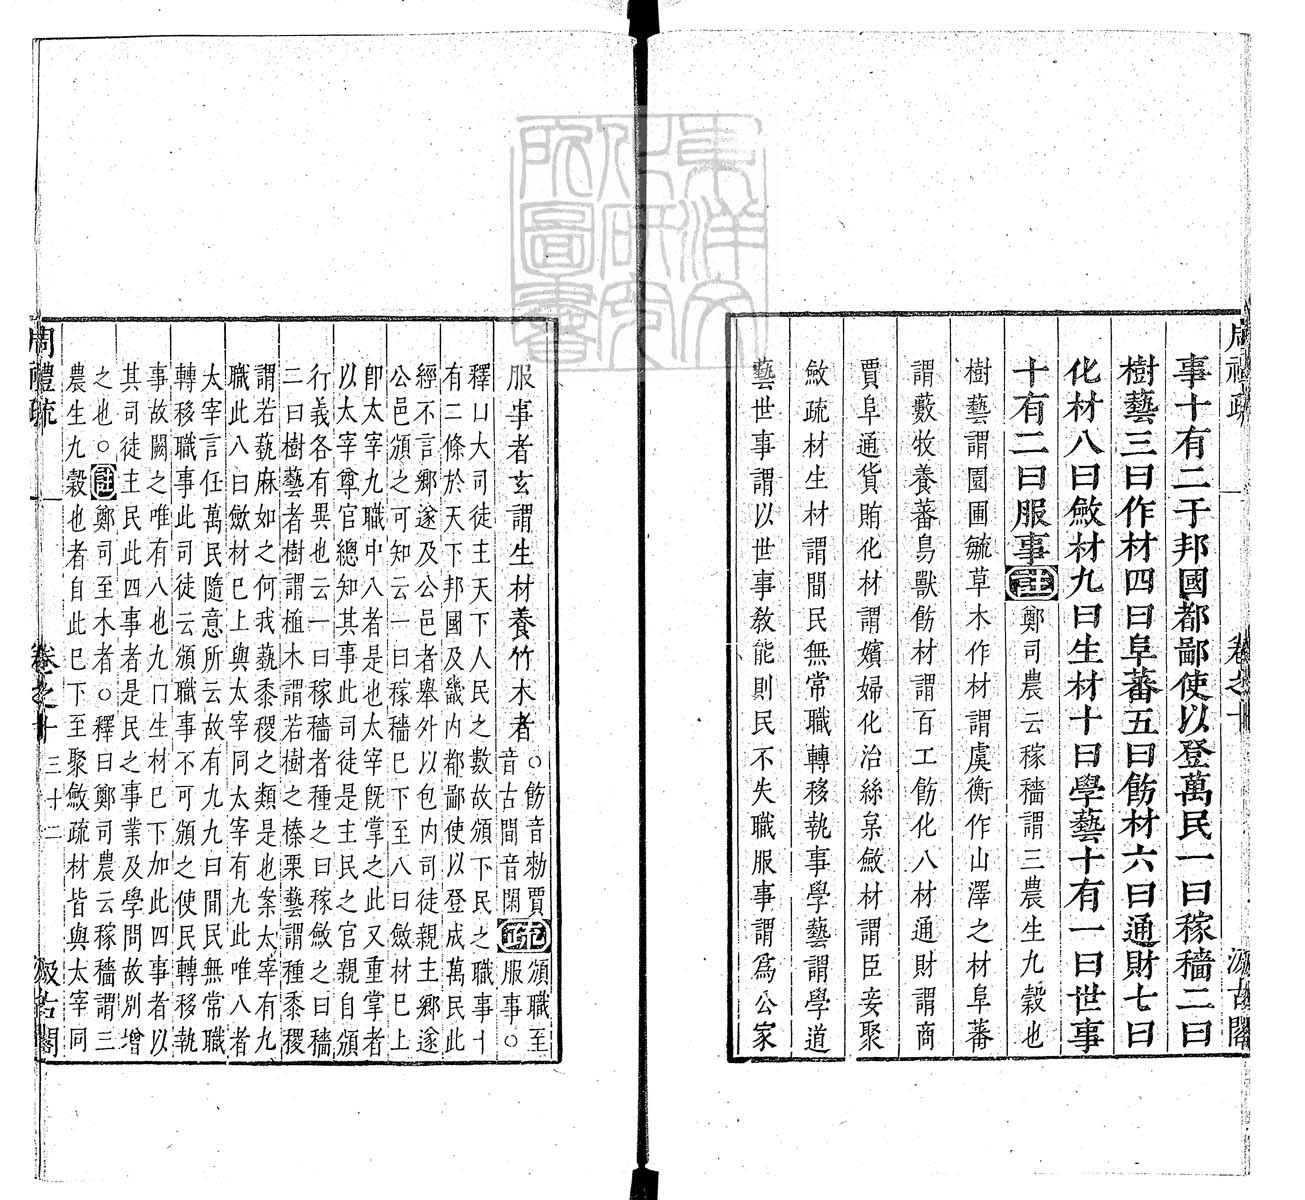 事十有二于邦國都鄙使以登萬民一曰稼穡二曰
樹藝三曰作材四曰阜蕃五曰飭材六曰通財七曰
化材八曰斂材九曰生材十曰學藝十有一曰世事
十有二曰服事註鄭司農云稼穡謂三農生九穀也
樹藝謂園圃毓草木作材謂虞衡作山澤之材阜蕃
謂藪牧養蕃鳥獸飭材謂百工飭化八材通財謂商
賈阜通貨賄化材謂嬪婦化治絲枲斂材謂臣妾聚
斂疏材生材謂閒民無常職轉移執事學藝謂學道
藝世事謂以世事教能則民不失職服事謂爲公家
服事者玄謂生材養竹木者
○飭音勑賈
音古閒音閑
疏
頒職至
服事○
釋曰大司徒主天下人民之數故頒下民之職事十
有二條於天下邦國及畿內都鄙使以登成萬民此
經不言鄉遂及公邑者舉外以包內司徒親主鄉遂
公邑頒之可知云一曰稼穡已下至八曰斂材已上
卽太宰九職中八者是也太宰旣掌之此又重掌者
以太宰尊官總知其事此司徒是主民之官親自頒
行義各有異也云一曰稼穡者種之曰稼斂之曰穡
二曰樹藝者樹謂植木謂若樹之榛栗藝謂種黍稷
謂若蓺麻如之何我蓺黍稷之類是也案太宰有九
職此八曰斂材已上與太宰同太宰有九此唯八者
大宰言任萬民隨意所云故有九九曰閒民無常職
轉移職事此司徒云頒職事不可頒之使民轉移執
事故闕之唯有八也九曰生材已下加此四事者以
其司徒主民此四事者是民之事業及學問故別增
之也○註鄭司至木者○釋曰鄭司農云稼穡謂三
農生九穀也者自此已下至聚斂疏材皆與太宰同
周禮疏 卷之十 三十二 汲古閣